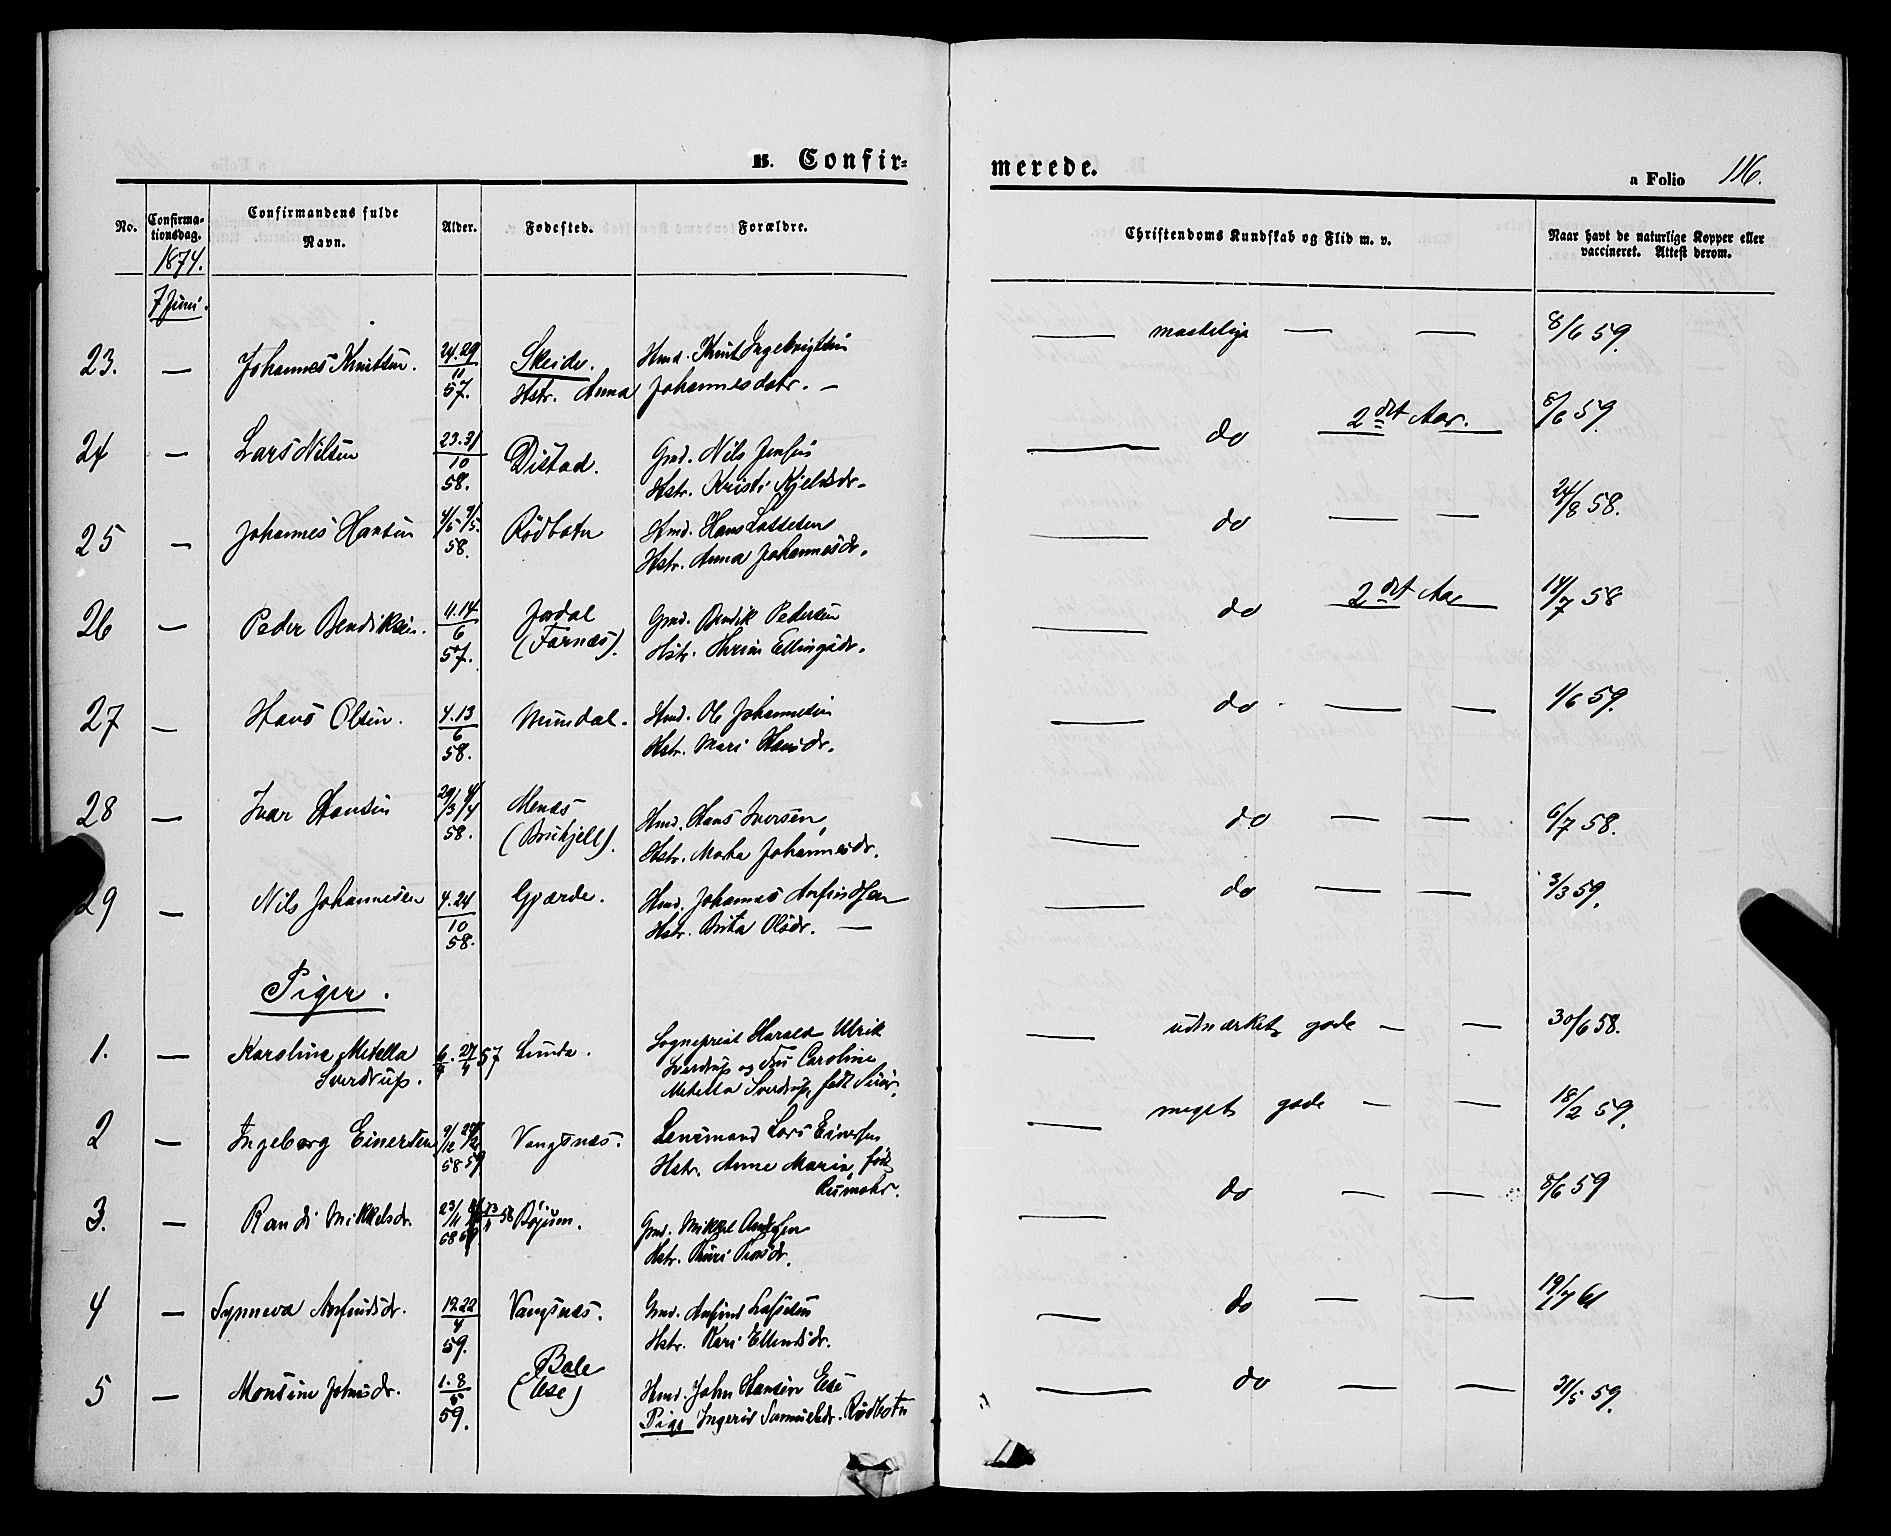 B. Confir-
merede.
a Folio 116.
No.
Confirma-
tionsdag.
1874.
Confirmandens fulde
Navn.
Alder.
Fødested.
Forældre.
Christendoms Kundskab og Flid m. v.
Naar havt de naturlige Kopper eller
vaccineret. Attest derom.
7 Juni.
23. — Johannes Knutsen. 24.29/11 57. Skeide. Hmd. Knut Ingebrigtsen — maadelige — — 8/6 59.
Hstr. Anna Johannesdatr. —
24 — Lars Nilsen 23.31/10 58. Distad. Gmd. Nils Jensen — do 2det Aar. 8/6 59.
Hstr. Kristi Kjelsdr.
25 — Johannes Hansen 4/5 9/5 58. Rødbotn Hmd. Hans Lassesen — do — — 24/8 58.
Hstr. Anna Johannesdr.
26 — Peder Bendiksen. 4.14/6 57. Jordal Gmd. Bendik Pedersen — do 2det Aar 14/7 58
(Farnæs). Hstr. Ellingsdr.
27 — Hans Olsen. 4.13/6 58. Mundal. Hmd. Ole Johannesen — do — — 1/6 59.
Hstr. Mari Hansdr.
28 — Ivar Hansen 29/3 4/4 58. Menæs Hmd. Hans Iversen — do — — 6/7 58.
Hstr. Marta Johannesdr.
29 — Nils Johannesen 4.24/10 58. Gjærde. Hmd. Johannes Anfindsen — do — — 3/3 59.
Hstr. Brita Olsdr. —
Piger.
1. — Karoline Metella 57 Linde. Sogneprest Harald Ulrik — udmærket gode — — 30/6 58.
Sverdrup. Sverdrup og Fru Caroline
Metella Sverdrup, født
2 — Ingeborg Einersen 58 59 Vangsnæs. Lensmand Lars Einersen — meget gode — — 18/2 59.
Hstr. Anne Marie, født
Rumohr.
3. — Randi Mikkelsdr. 23/11 58 Bøjum. Gmd. Mikkel — do — — 8/6 59
Hstr.
4 — Synneva Anfindsdr. 12.22/4 59. Vangsnæs. Gmd. Anfind — do — — 19/7 61
Hstr. Kari Ellendsdr.
5 — Monsine Johnsdr. 1.8/5 59. Bale Hmd. John Hansen Ese — do — — 31/5 59.
(Ese) Pige Ingerid Samuelsdr. Rødbotn